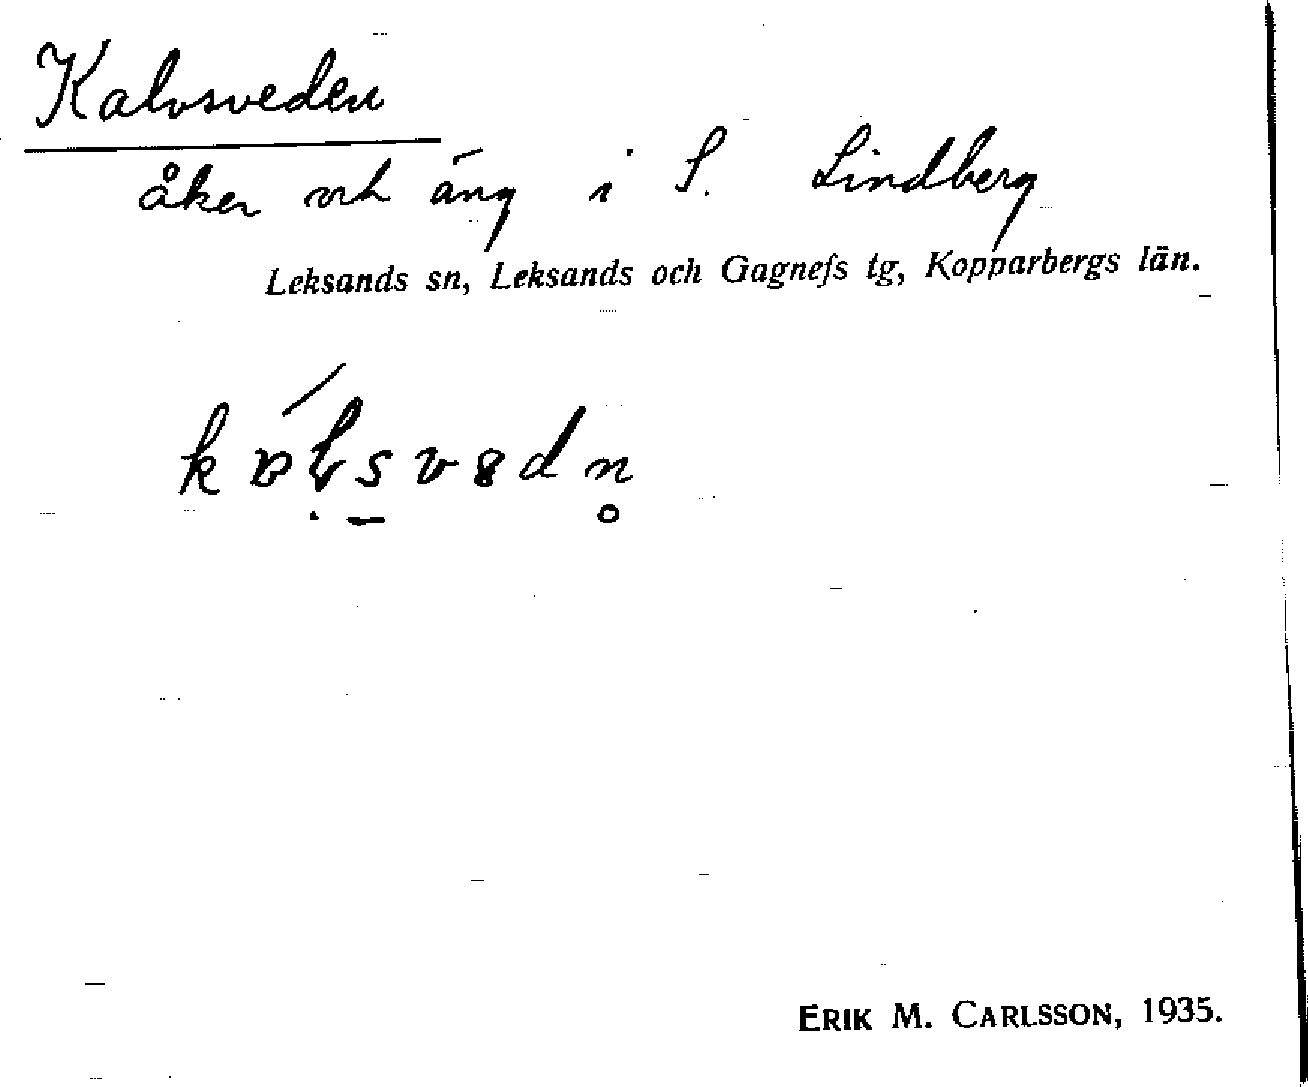 Kalvsveden
åker och äng i S. Lindberg
Leksands sn, Leksands och Gagnefs tg, Kopparbergs län.
ERIK M. CARLSSON, 1935.